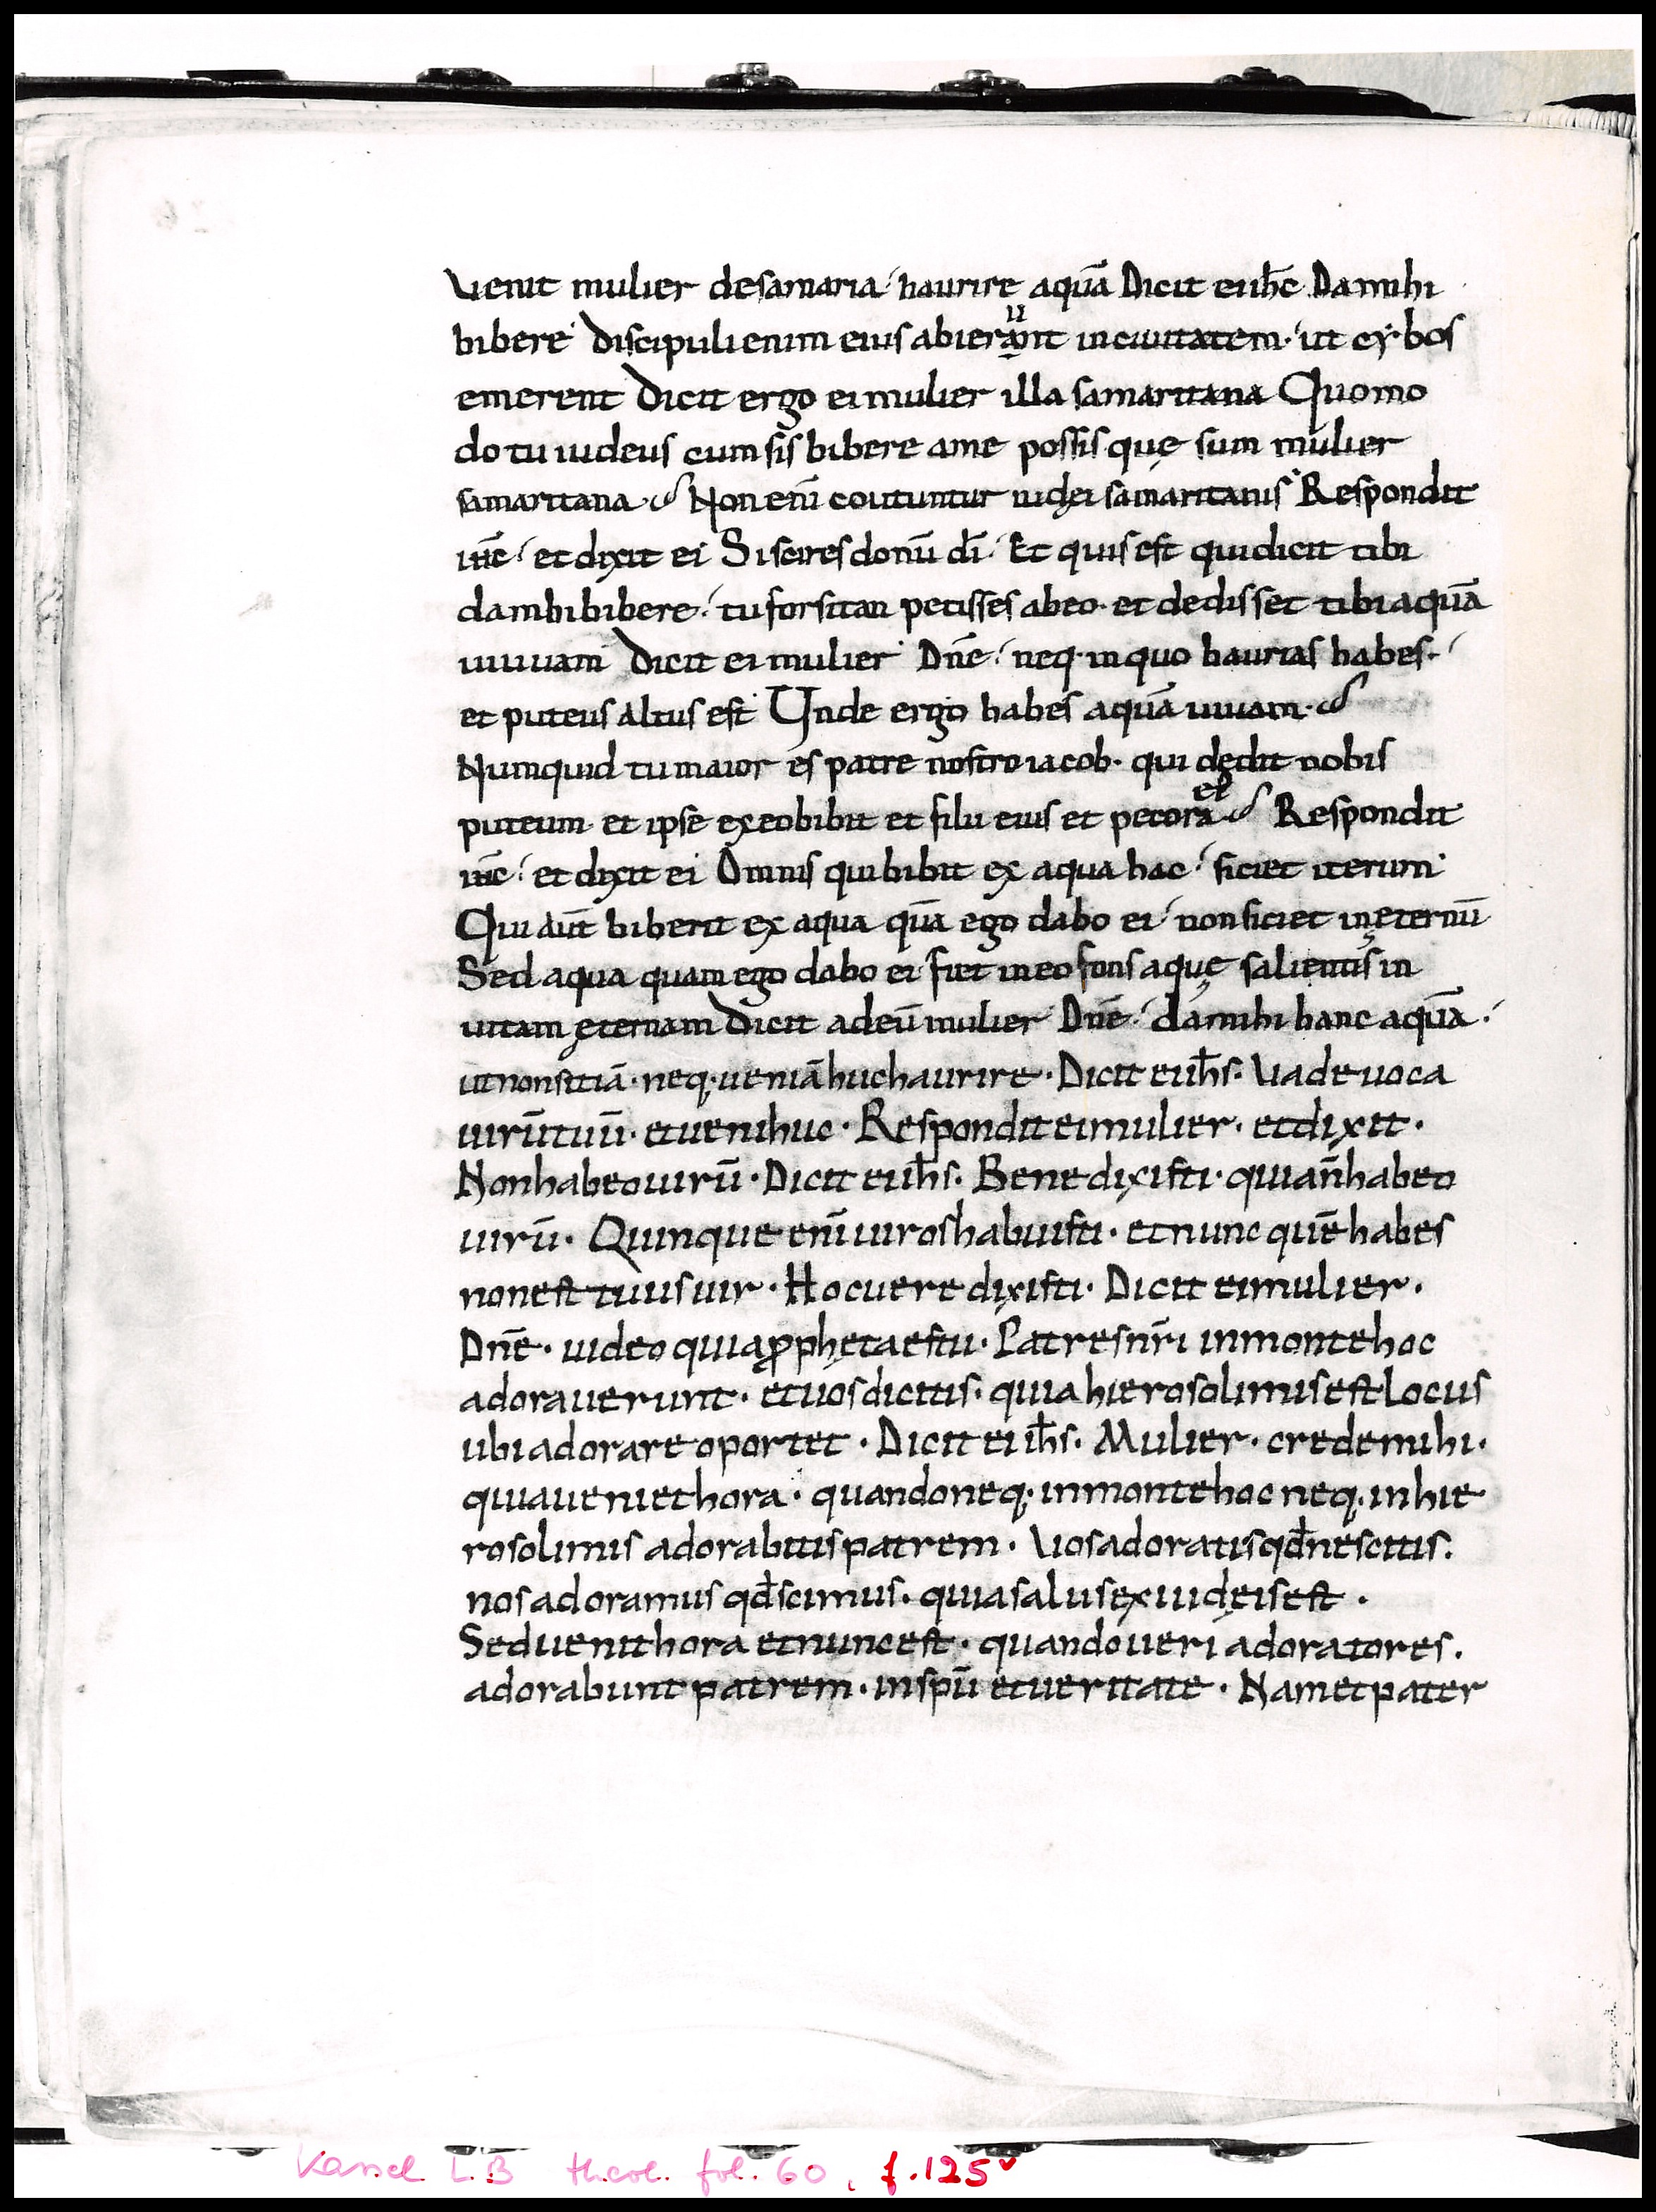 Uenit mulier desamaria haurire aquā Dicit eiihc̄ Damihi
bibere Discipulienim eius abierunt inciuitatem ut cybos
emerent Dicit ergo eimulier illa samaritana Quomo
do tu iudeus cum sis bibere ame possis quę sum mulier
samaritana Non enī coutuntur iudęi samaritanis Respondit
ihc̄ et dixit ei Siscires donū dī Et quis est quidicit tibi
dambibibere tu forsitan petisses abeo · et dedisset tibi aquā
uiuuam Dicit ei mulier Dnē neq· inquo haurias habes
et puteus altus est Unde ergo habes aquā uiuam
Numquid tu maior es patre nostro iacob · qui dędit nobis
puteum et ipse exeobibit et filii eius et pecora ei Respondit
ihc̄ et dixit ei Omnis quibibit ex aqua hac siciet iterum
Qui aūt biberit ex aqua quā ego dabo ei nonsiciet inęternū
Sed aqua quam ego dabo ei fiet ineo fons aquę salientis in
uitam ęternam Dicit adeū mulier Dnē damihi hanc aquā
utnonsitiā · neq· ueniā huchaurire · Dicit eiih̄s · Uade uoca
uirūtuū · etuenihuc · Respondit eimulier · etdixit ·
Nonhabeouirū · Dicit eiih̄s · Benedixisti · quian̄habeo
uirū · Quinque enī uiroshabuisti · etnunc quē habes
nonest tuusuir · Hocueredixisti · Dicit eimulier ·
Dnē · uideo quiaꝓphętaestu · Patresnr̄i inmontehoc
adorauerunt · etuosdicitis · quia hierosolimisest locus
ubiadorareoportet · Dicit ei ih̄s · Mulier · credemihi ·
quiaueniethora · quandoneq· inmontehoc neq· inhie
rosolimis adorabitispatrem · Uosadoratisqd̄nescitis ·
nosadoramus qd̄scimus · quiasalusexiudęisest ·
Seduenithora etnuncest · quandoueri adoratores ·
adorabunt patrem · inspū etueritate · Nametpater
Kassel L.B theol. fol. 60, f. 125v